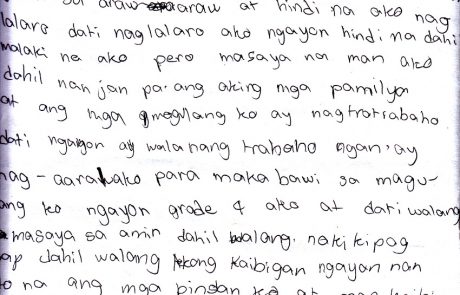 sa araw araw at hindi na ako nag
lalaro dati naglalaro ako ngayon hindi na dahi
malaki na ako pero masaya na man ako
dahil nan jan pa. ang aking mga pamilya
at ang mga magulang ko ay nagtratrabaho
dati ngayon ay walanang trabaho ngan,ay
nag-aaralako para maka bawi sa magu-
ang ko ngayon grade 4 ako at dati walang
masaya sa amin dahil walang. nakikipag
ap dahil walang akong kaibigan ngayan nan
to na ang mga pinsan ko at